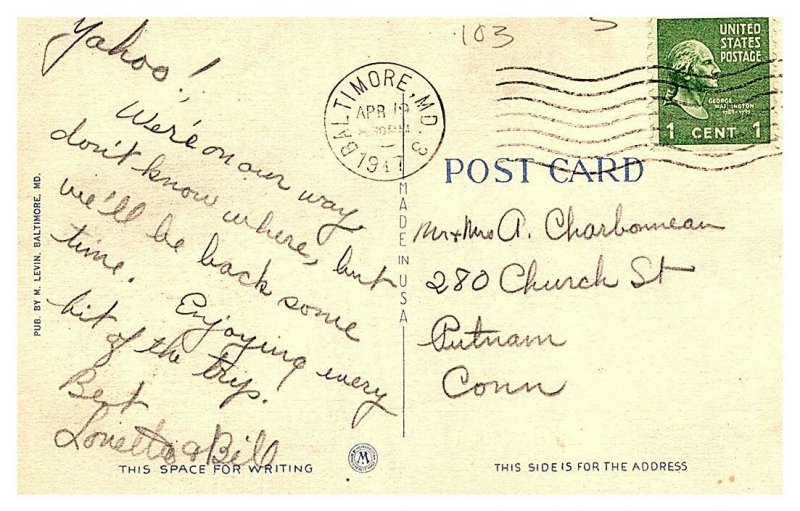 103
Yahoo!
We're on our way,
don't know where, but
we'll be back some
time. Enjoying every
bit of the trip!
Best
Loretta & Bill
THIS SPACE FOR WRITING
PUB. BY M. LEVIN, BALTIMORE, MD.
MADE IN USA
BALTIMORE, MD. 3
APR
PM
1947
UNITED
STATES
POSTAGE
GEORGE
WASHINGTON
1 CENT 1
POST CARD
Mr & Mrs A. Charbonneau
280 Church St
Putnam
Conn
THIS SIDE IS FOR THE ADDRESS